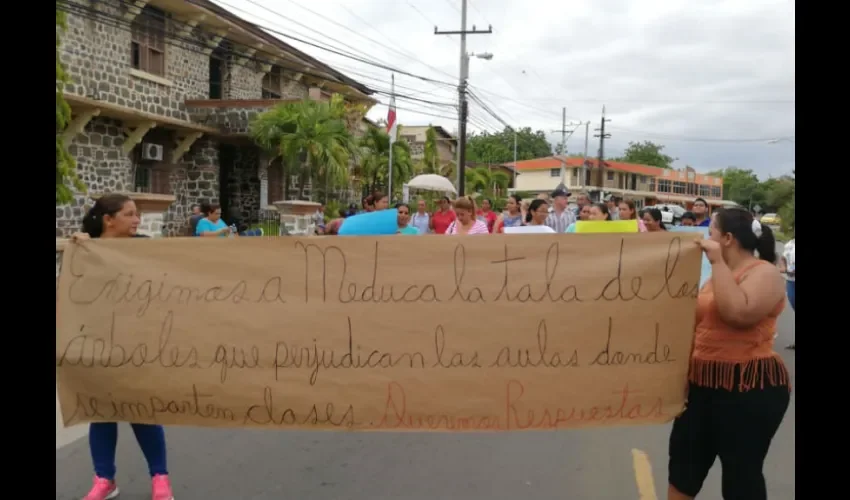 Exigimos a Meduca la tala de los
árboles que perjudican las aulas donde
se imparten clases. Queremos Respuestas